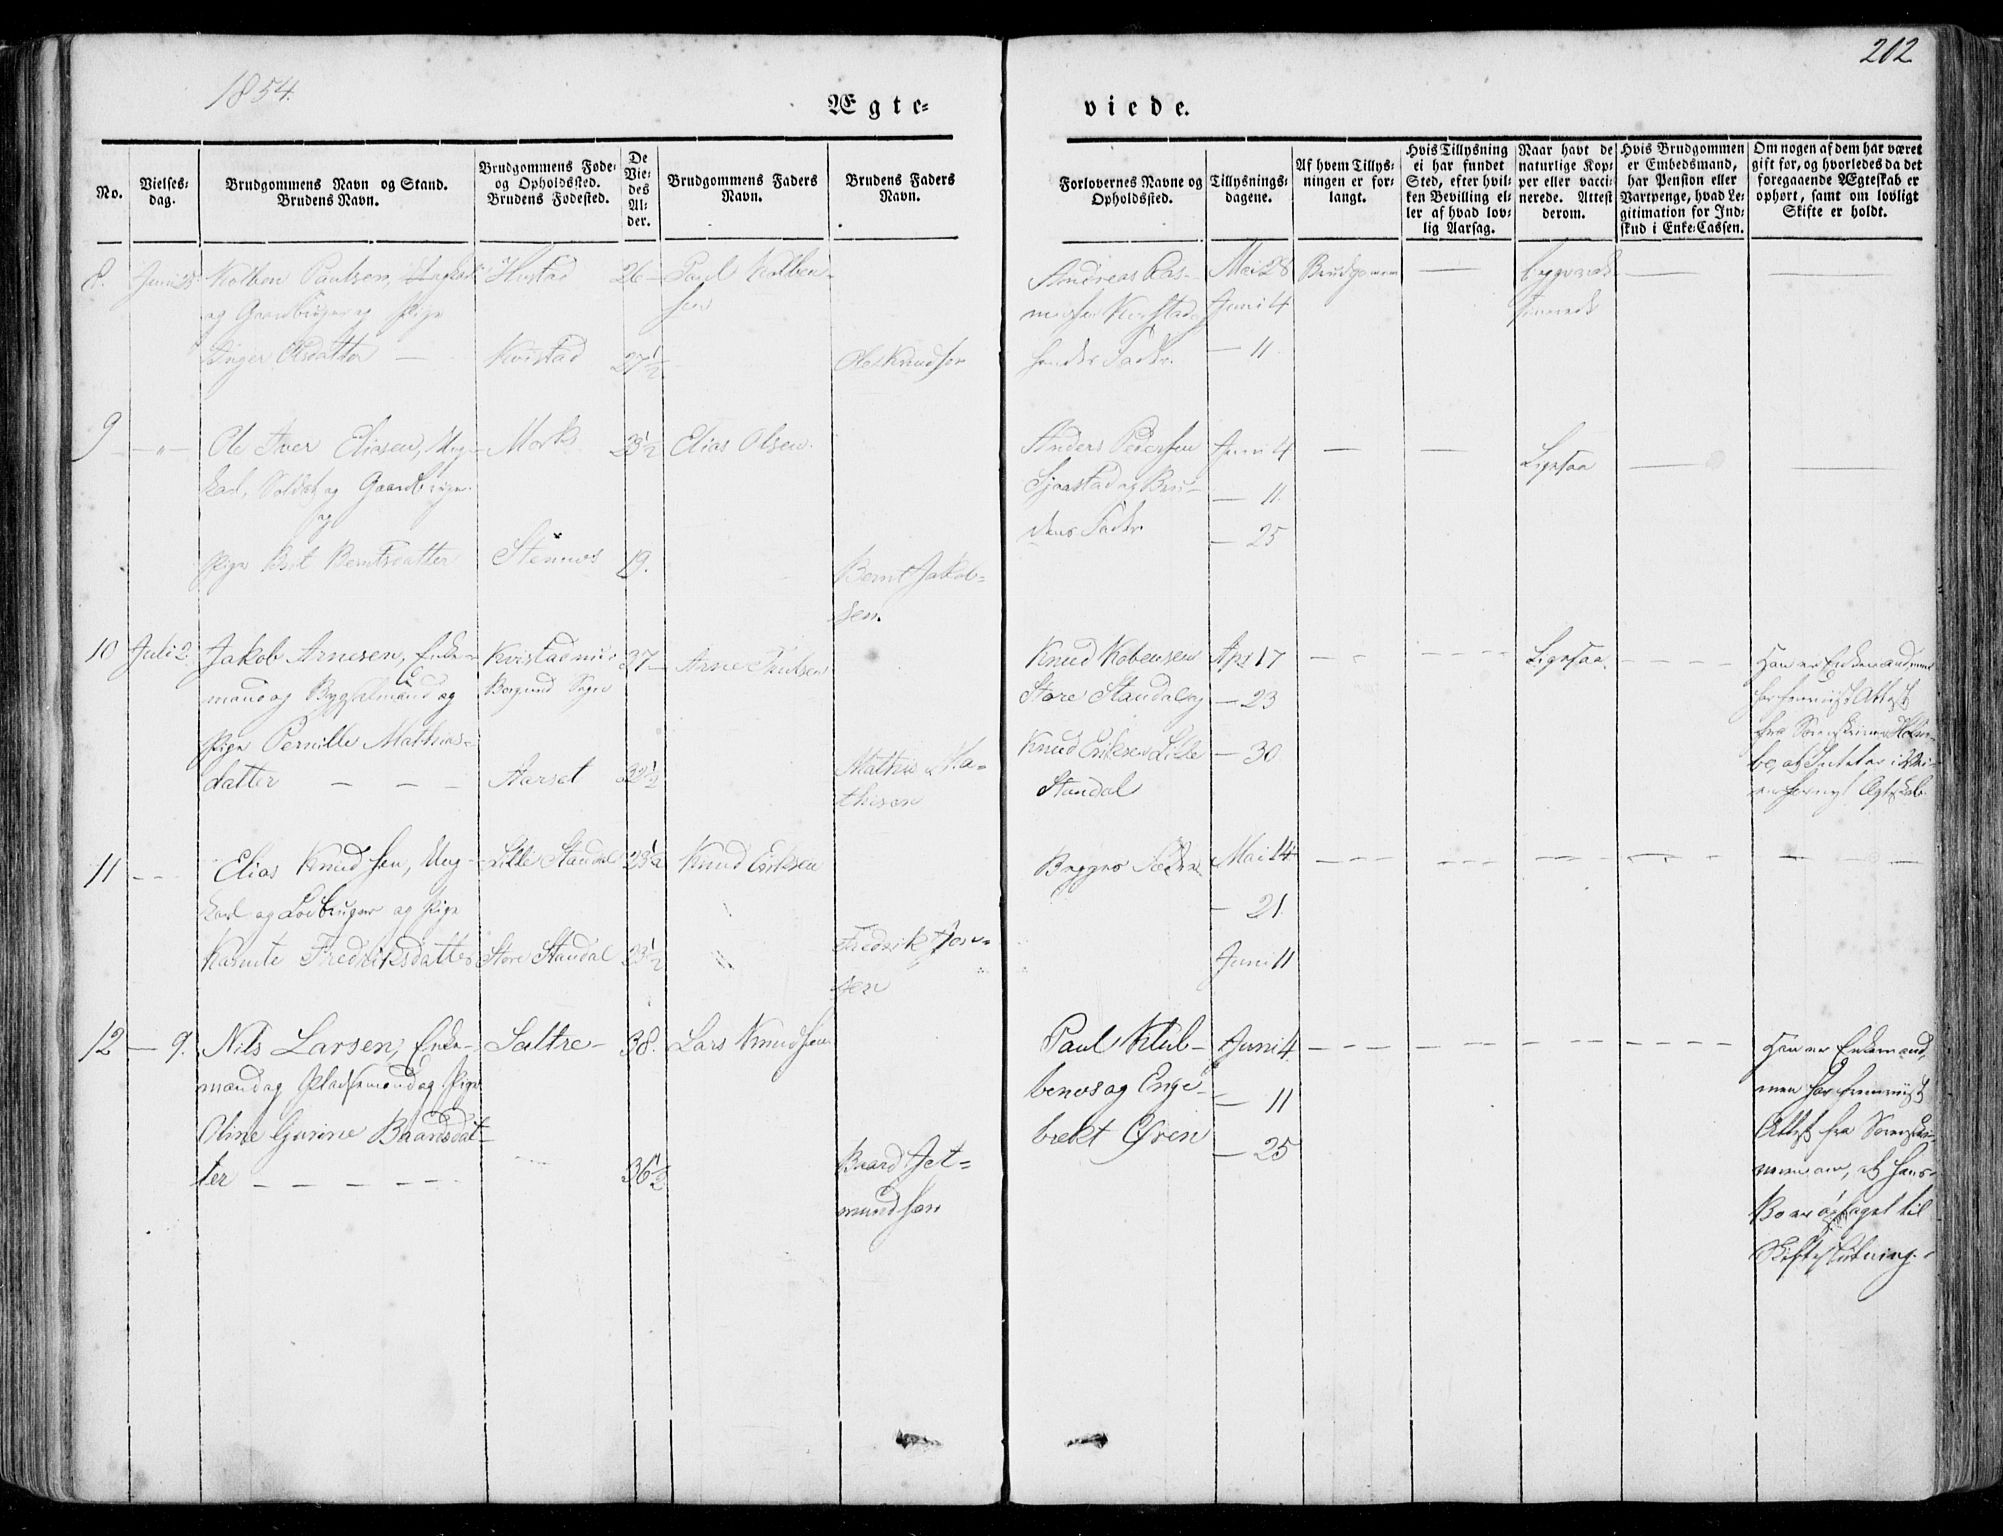 1854.
202
Ægte-
viede.
No.
Vielses-
dag.
Brudgommens Navn og Stand.
Brudens Navn.
Brudgommens Føde-
og Opholdssted.
Brudens Fødested.
De
Vie-
des
Al-
der.
Brudgommens Faders
Navn.
Brudens Faders
Navn.
Forlovernes Navne og
Opholdssted.
Tillysnings-
dagene.
Af hvem Tillys-
ningen er for-
langt.
Hvis Tillysning
ei har fundet
Sted, efter hvil-
ken Bevilling el-
ler af hvad lov-
lig Aarsag.
Naar havt de
naturlige Kop-
per eller vacci-
nerede. Attest
derom.
Hvis Brudgommen
er Embedsmand,
har Pension eller
Vartpenge, hvad Le-
gitimation for Ind-
skud i Enke-Cassen.
Om nogen af dem har været
gift før, og hvorledes da det
foregaaende Ægteskab er
ophørt, samt om lovligt
Skifte er holdt.
8.
Juni 25
Kolben Paulsen,
og Gaardbruger og Pige
Inger Olsdatter —
Kvistad
26 —
27½
Paul Kolben-
sen
Ole Knudsen
Andreas Ras-
mussen Kvistad og
hendes Fader.
Mai 28
Juni 4
— 11
Brudgommen
—
begge vacci-
nerede
—
—
9
— " —
Ole Iver Eliasen, Ung-
karl, Soldat og Gaardbruger
og
Pige Berit Berntsdatter
Mork
Stennes
23½
19.
Elias Olsen.
Bernt Jakob-
sen.
Anders Pedersen
Sjaastad og Bru-
dens Fader.
Juni 4
— 11.
— 25
—
—
Ligesaa
—
—
10
Juli 2.
Jakob Arnesen, Enke-
mand og Bygselmand og
Pige Pernille Mathias-
datter — — —
Borgund Sogn
Aarset
37 —
32½
Arne Knutsen
Mathis Ma-
thisen
Knud Kobensen
Store Standal og
Knud Eriksen Lille
Standal
Apr 17
— 23
— 30
Ligesaa.
Han er Enkemand, men
har fremvist Attest
fra Sorenskriver Holm-
boe, at Intet er i Vei-
en for nyt Ægteskab.
11
— —
Elias Knudsen, Ung-
karl og Lodbruger og Pige
Karnte Fredriksdatter
Lille Standal
Store Standal
23½
23½
Knud Eriksen
Fredrik Jen-
sen
Begges Fædre
Mai 14
— 21
Juni 11
12
— 9.
Nils Larsen, Enke-
mand og Pladsemand og Pige
Oline Gurine Baardsdat-
ter — — — — —
Sætre —
38.
36½
Lars Knudsen
Baard Jet-
mundsen
Paul Klub-
benes og Enge-
brekt Øren
Juni 4
— 11
— 25
Han er Enkemand,
men har fremvist
Attest fra Sorenskri-
veren om, at hans
Bo er optaget til
Skifteslutning.